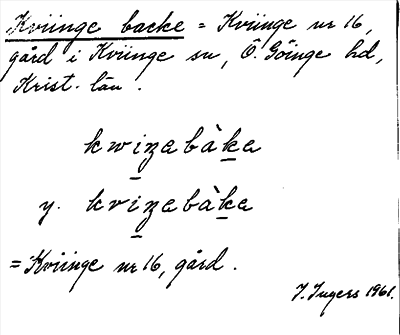 Kviinge backe = Kviinge nr 16,
gård i Kviinge sn, Ö. Göinge hd,
Krist. län.
kwiŋabàka
y. kviŋabàka
= Kviinge nr 16, gård.
J. Ingers 1961.